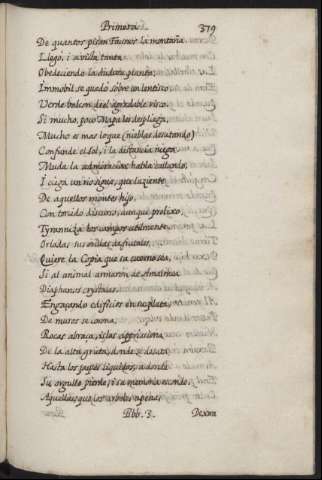 Primera. 379
De quantos pisan Faunos la montaña
Llegò, i a vista tanta
Obedeciendo la dudosa planta,
Immobil se quedò sobre un lentisco
Verde balcon del agradable risco.
Si mucho, poco Mapa les despliega,
Mucho es mas lo que (nieblas desatando)
Confunde el Sol, i la distancia niega.
Muda la admiracion, habla callando,
I ciega un rio sigue, que luziente
De aquellos montes hijo,
Con torcido discurso, aunque prolixo,
Tyranniza los campos utilmente
Orladas sus orillas de frutales,
Quiere la Copia que su cuerno sea,
Si al animal armaron de Amalthea
Diaphanos crystales,
Engarçando edificios en su plata,
De muros se corona,
Rocas abraça, islas apprisiona,
De la alta gruta, donde se desata
Hasta los jaspes liquidos, a donde
Su orgullo pierde, i su memoria esconde.
Aquellas que los arboles apenas
Bbb 3. Dexan